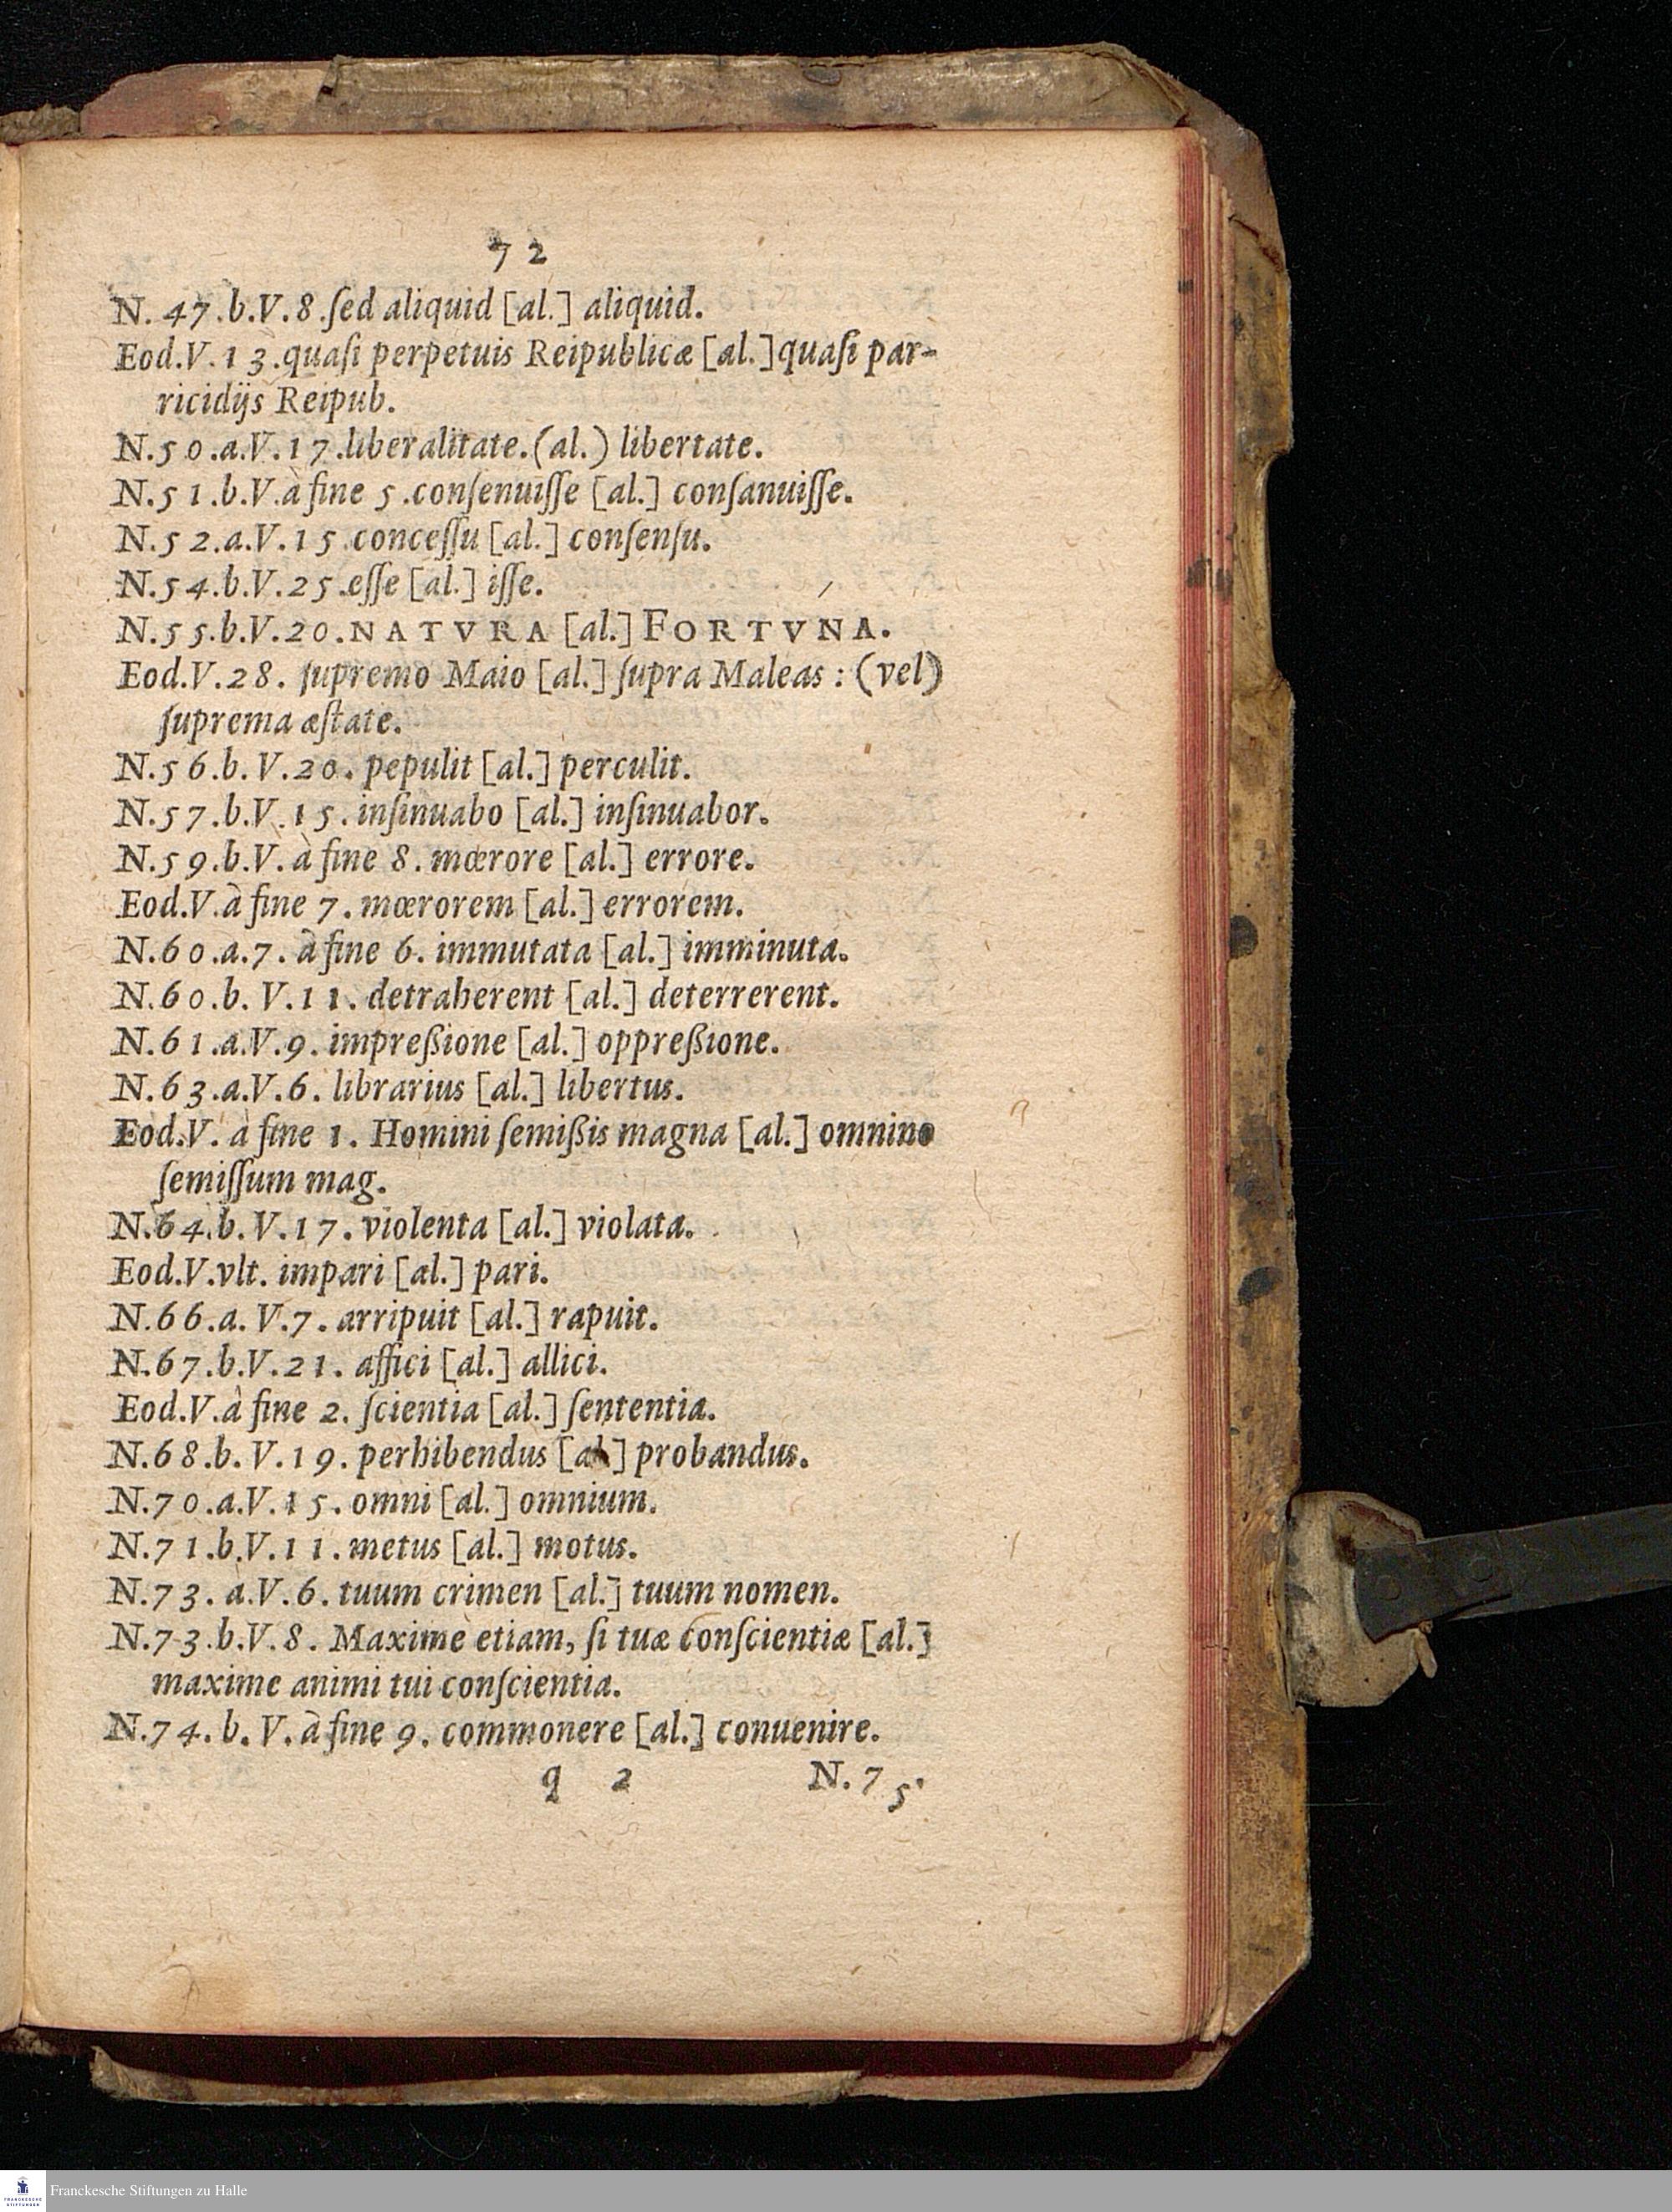 72
N. 47.b.V.8.ſed aliquid [al.] aliquid.
Eod.V.13.quaſi perpetuis Reipublicæ [al.]quaſi par-
ricidijs Reipub.
N.50.a.V.17.liberalitate.(al.) libertate.
N.51.b.V.à fine 5.conſenuiſſe [al.] conſanuiſſe.
N.52.a.V.15.conceſſu [al.] conſenſu.
N.54.b.V.25.eſſe [al.] iſſe.
N.55.b.V.20.NATVRA [al.] FORTVNA.
Eod.V.28. ſupremo Maio [al.] ſupra Maleas : (vel)
ſuprema æſtate.
N.56.b.V.20. pepulit [al.] perculit.
N.57.b.V.15. inſinuabo [al.] inſinuabor.
N.59.b.V.à fine 8. mœrore [al.] errore.
Eod.V.à fine 7. mœrorem [al.] errorem.
N.60.a.7. à fine 6. immutata [al.] imminuta.
N.60.b.V.11. detraherent [al.] deterrerent.
N.61.a.V.9. impreßione [al.] oppreßione.
N.63.a.V.6. librarius [al.] libertus.
Eod.V. à fine 1. Homini ſemißis magna [al.] omnino
ſemiſſum mag.
N.64.b.V.17. violenta [al.] violata.
Eod.V.vlt. impari [al.] pari.
N.66.a.V.7. arripuit [al.] rapuit.
N.67.b.V.21. affici [al.] allici.
Eod.V.à fine 2. ſcientia [al.] ſententia.
N.68.b.V.19. perhibendus [al.] probandus.
N.70.a.V.15. omni [al.] omnium.
N.71.b.V.11. metus [al.] motus.
N.73. a.V.6. tuum crimen [al.] tuum nomen.
N.73.b.V.8. Maxime etiam, ſi tuæ conſcientiæ [al.]
maxime animi tui conſcientia.
N.74.b.V.à fine 9. commonere [al.] conuenire.
q 2 N.75.
FRANCKESCHE STIFTUNGEN
Franckesche Stiftungen zu Halle